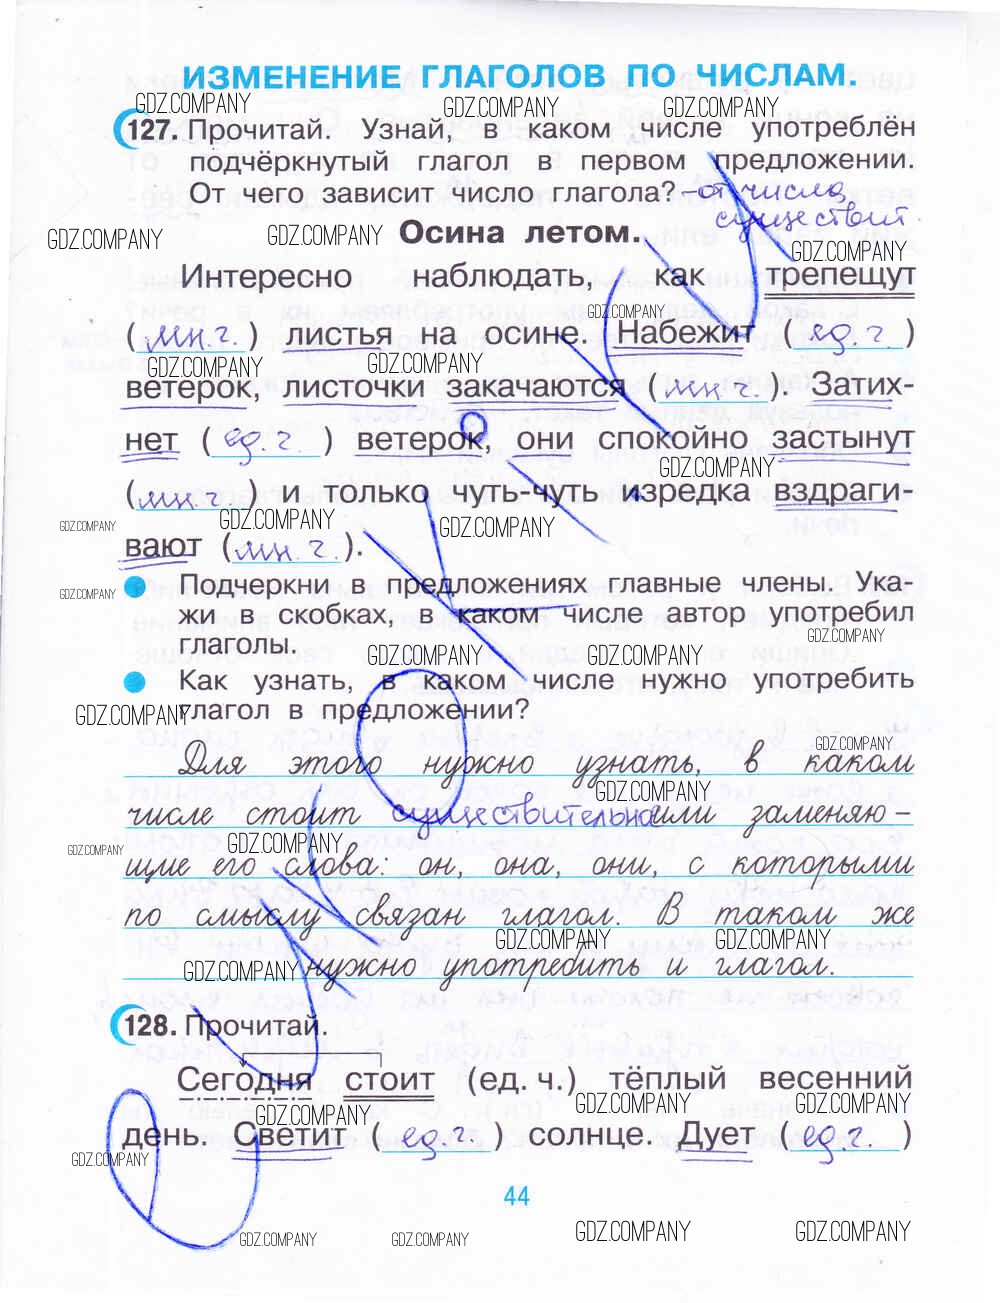 ИЗМЕНЕНИЕ ГЛАГОЛОВ ПО ЧИСЛАМ
GDZ.COMPANY GDZ.COMPANY GDZ.COMPANY
127. Прочитай. Узнай, в каком числе употреблён
подчёркнутый глагол в первом предложении.
От чего зависит число глагола? – от числа
существит.
GDZ.COMPANY GDZ.COMPANY Осина летом. GDZ.COMPANY
Интересно наблюдать, как трепещут
GDZ.COMPANY
(мн. ч.) листья на осине. Набежит (ед. ч)
GDZ.COMPANY GDZ.COMPANY
ветерок, листочки закачаются (мн. ч.). Затих-
нет (ед. ч.) ветерок, они спокойно застынут
GDZ.COMPANY
(мн. ч.) и только чуть-чуть изредка вздраги-
GDZ.COMPANY GDZ.COMPANY GDZ.COMPANY
вают (мн. ч.).
Подчеркни в предложениях главные члены. Ука-
GDZ.COMPANY
жи в скобках, в каком числе автор употребил
GDZ.COMPANY
глаголы.
GDZ.COMPANY GDZ.COMPANY
Как узнать, в каком числе нужно употребить
GDZ.COMPANY
глагол в предложении?
GDZ.COMPANY
Для этого нужно узнать, в каком
GDZ.COMPANY
числе стоит существительное или заменяю-
GDZ.COMPANY GDZ.COMPANY
щие его слова: он, она, они, с которыми
по смыслу связан глагол. В таком же
GDZ.COMPANY GDZ.COMPANY
GDZ.COMPANY нужно употребить и глагол.
128. Прочитай.
Сегодня стоит (ед. ч.) тёплый весенний
GDZ.COMPANY GDZ.COMPANY GDZ.COMPANY
день. Светит (ед. ч.) солнце. Дует (ед. ч.)
GDZ.COMPANY
44
GDZ.COMPANY GDZ.COMPANY GDZ.COMPANY GDZ.COMPANY